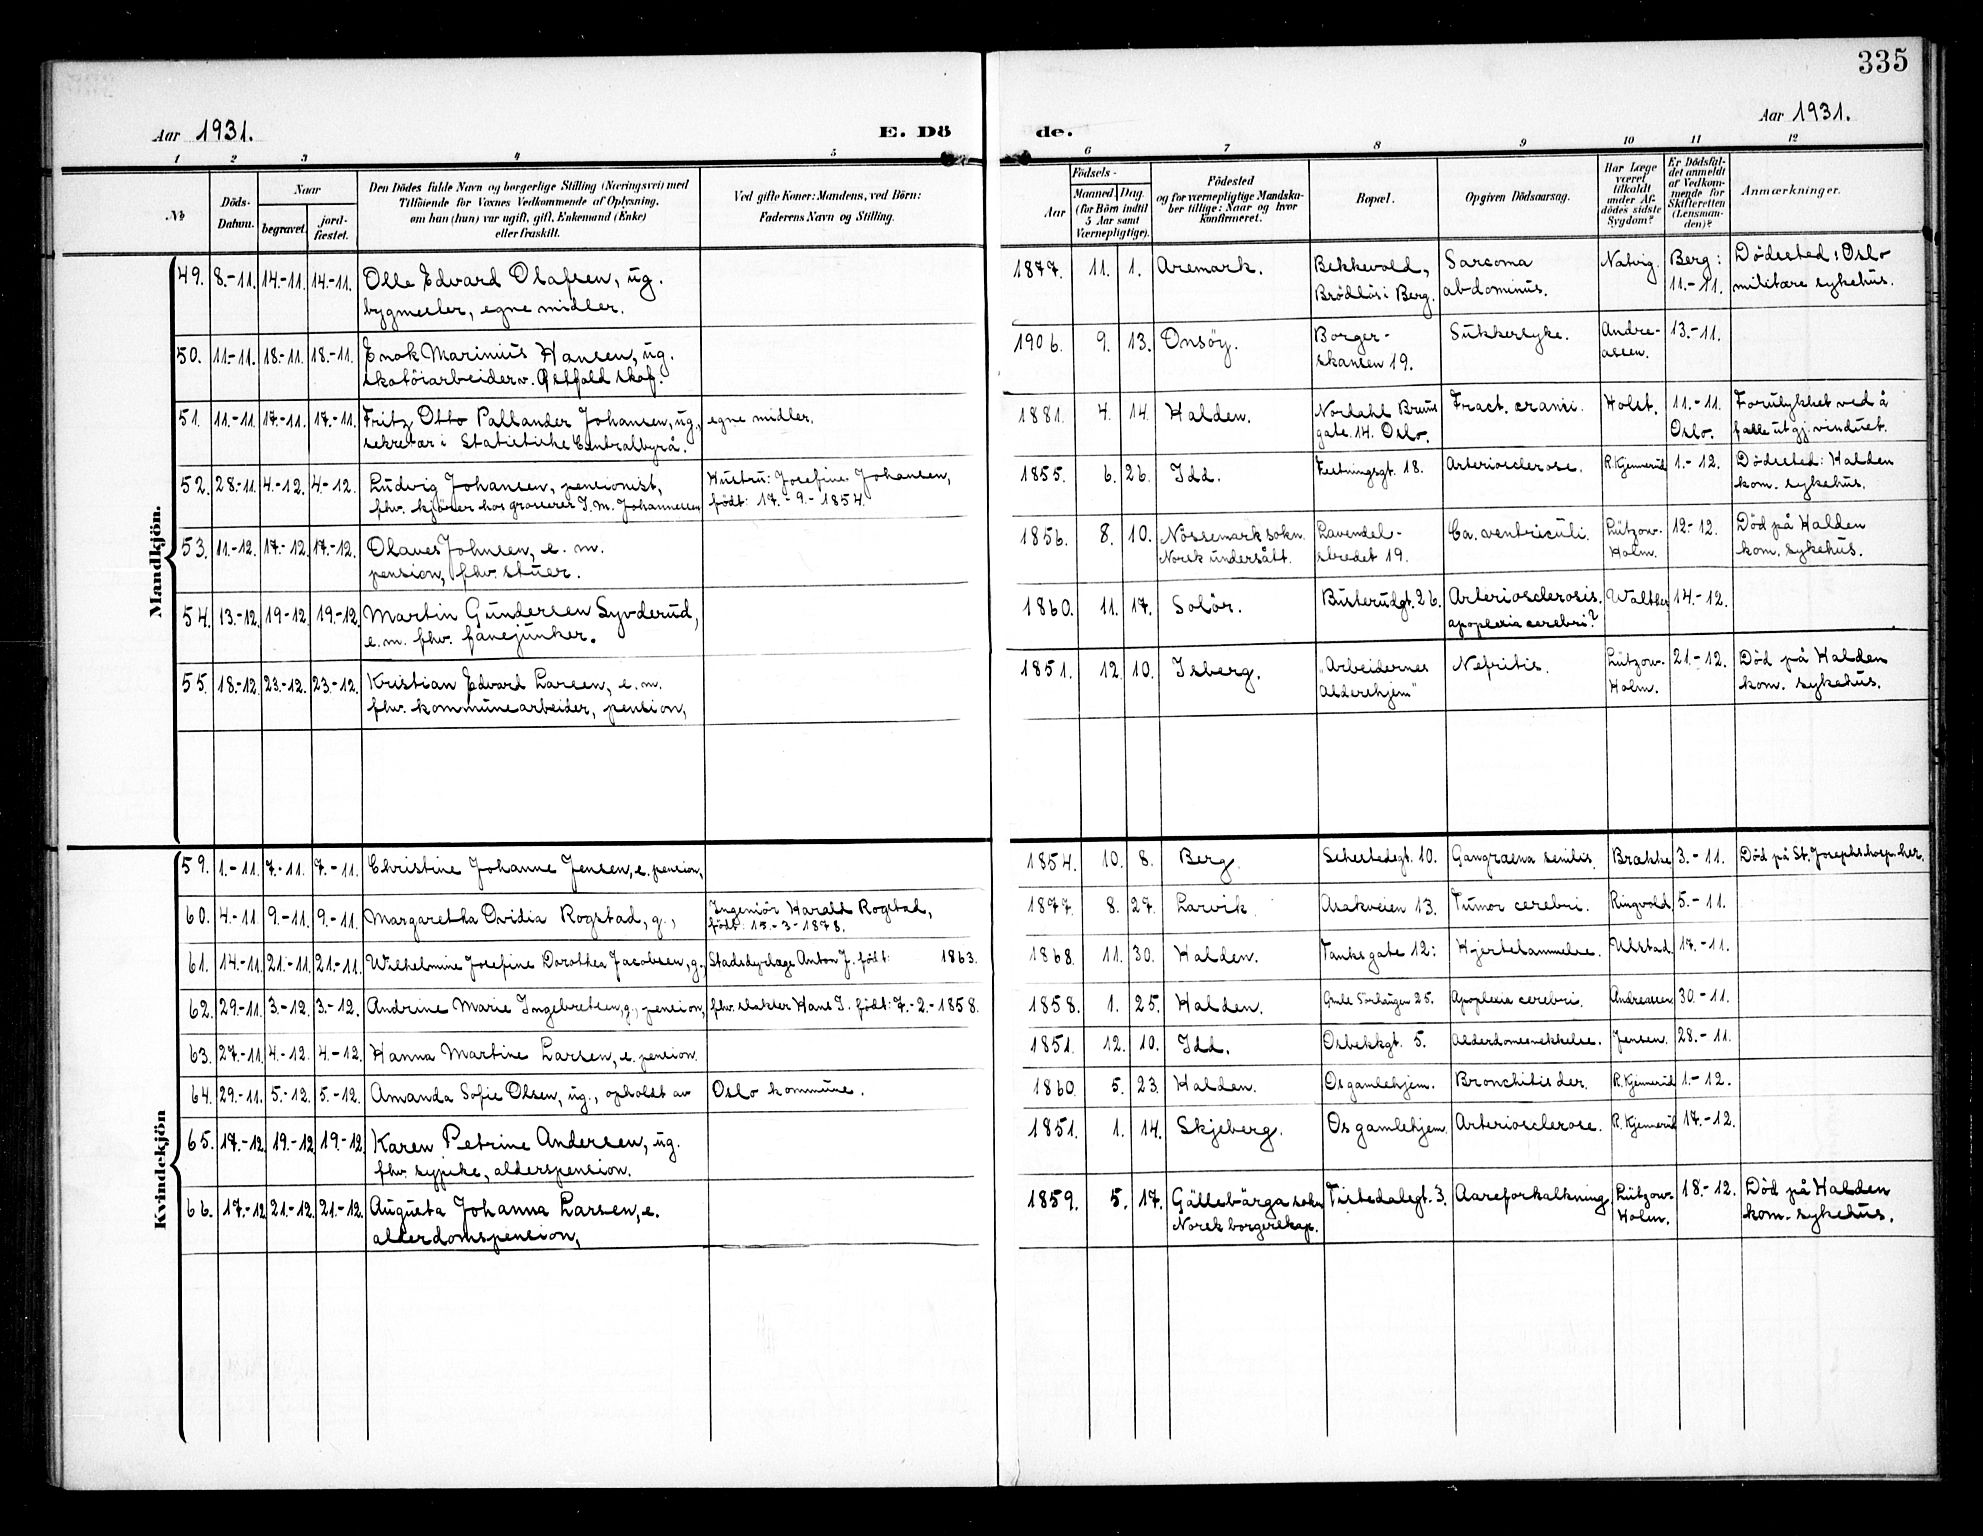 335
Aar 1931. E. Dö de. Aar 1931.
1 2 3 4 5 6 7 8 9 10 11 12
No
Döds-Datum.
Naar
begravet.
jord-fæstet.
Den Dödes fulde Navn og borgerlige Stilling (Næringsvei) med
Tilföiende for Voxnes Vedkommende af Oplysning,
om han (hun) var ugift, gift, Enkemand (Enke)
eller fraskilt.
Ved gifte Koner: Mandens, ved Börn:
Faderens Navn og Stilling.
Födsels-
Aar
Maaned. Dag.
(for Börn indtil
5 Aar samt
Værnepligtige).
Födested
og for værnepligtige Mandska-
ber tillige: Naar og hvor
Konfirmeret.
Bopæl.
Opgiven Dödsaarsag.
Har Læge
været
tilkaldt
under Af-
dödes sidste
Sygdom?
Er Dödsfal-
det anmeldt
af Vedkom-
mende for
Skifteretten
(Lensman-
den)?
Anmærkninger.
Mandkjön.
49. 8.-11. 14.-11. 14.-11. Olle Edvard Olafsen, ug. 1877. 11. 1. Aremark. Bekkevold, Sarcoma Natvig. Berg: Dödssted: Oslo
bygmester, egne midler. Brödlös i Berg. abdominus. 11.-11. militære sykehus.
50. 11.-11. 18.-11. 18.-11. Enok Marinius Hansen, ug. 1906. 9. 13. Onsöy. Borger- Sukkersyke. Andre- 13.-11.
skotöiarbeider v. Østfold skof. skansen 19. assen.
51. 11.-11. 17.-11. 17.-11. Fritz Otto Pallander Johansen, ug., egne midler. 1881. 4. 14. Halden. Nordahl Bruns Fract. cranii. Holst. 11.-11. Forulykket ved å
sekretær i Statistiske Centralbyrå. gate. 14. Oslo. Oslo. falle ut gj. vinduet.
52. 28.-11. 4.-12. 4.-12. Ludvig Johansen, pensionist, Hustru: Josefine Johansen, 1855. 6. 26. Idd. Festningsgt. 18. Arteriosclerose. R. Kjennerud 1.-12. Dödssted: Halden
fhv. kjörer hos grosserer J. M. Johannessen födt: 17.-9.-1854. kom. sykehus.
53. 11.-12. 17.-12. 17.-12. Olaves Johnsen, e. m. 1856. 8. 10. Nössemark sokn. Lavendel- Ca. ventriculi. Lützow- 12.-12. Död på Halden
pension, fhv. stuer. Norsk undersått. stredet 19. Holm. kom. sykehus.
54. 13.-12. 19.-12. 19.-12. Martin Gundersen Syvderud, 1860. 11. 17. Solör. Busterudgt. 26. Arteriosclerosis. Walther 14.-12.
e. m. fhv. fanejunker. apoplexia cerebri?
55. 18.-12. 23.-12. 23.-12. Kristian Edvard Larsen, e. m. 1851. 12. 10. Isberg. "Arbeidernes Nefritis. Lützow- 21.-12. Död på Halden
fhv. kommunearbeider, pension, Aldershjem" Holm. kom. sykehus.
Kvindekjön
59. 1.-11. 7.-11. 7.-11. Christine Johanne Jensen, e. pension, 1854. 10. 8. Berg. Sehestedsgt. 10. Gangraena senilis. Brække 3.-11. Död på St. Josephs hosp. her.
60. 4.-11. 9.-11. 9.-11. Margaretha Ovidia Rogstad, g., Ingeniör Harald Rogstad, 1877. 8. 27. Larvik. Asakveien 13. Tumor cerebri. Ringvold. 5.-11.
födt: 15.-3.-1878.
61. 14.-11. 21.-11. 21.-11. Wilhelmine Josefine Dorothea Jacobsen, g., Stadsdyrlæge Anton J. födt: 1863. 1868. 11. 30. Halden. Tanksgate 12: Hjertelammelse. Ulstad. 17.-11.
62. 29.-11. 3.-12. 3.-12. Andrine Marie Ingebretsen, g., pension, fhv. slakter Hans I. födt: 7.-2.-1858. 1858. 1. 25. Halden. Gamle Sörhaugen 25. Apoplexia cerebri. Andreassen 30.-11.
63. 27.-11. 4.-12. 4.-12. Hanna Martine Larsen, e. pension. 1851. 12. 10. Idd. Osbekkgt. 5. Alderdomssvekkelse. Jensen. 28.-11.
64. 29.-11. 5.-12. 5.-12. Amanda Sofie Olsen, ug., opholdt av Oslo kommune. 1860. 5. 23. Halden. Os gamlehjem. Bronchitis der. R. Kjennerud 1.-12.
65. 17.-12. 19.-12. 19.-12. Karen Petrine Andersen, ug. 1851. 1. 14. Skjeberg. Os gamlehjem. Arteriosclerose. R. Kjennerud 17.-12.
fhv. sypike, alderspension.
66. 17.-12. 21.-12. 21.-12. Augusta Johanna Larsen, e. 1859. 5. 17. Gällebärga sokn Tistedalsgt. 3. Aareforkalkning. Lützow- 18.-12. Död på Halden
alderdomspension, Norsk borgerskap. Holm. kom. sykehus.